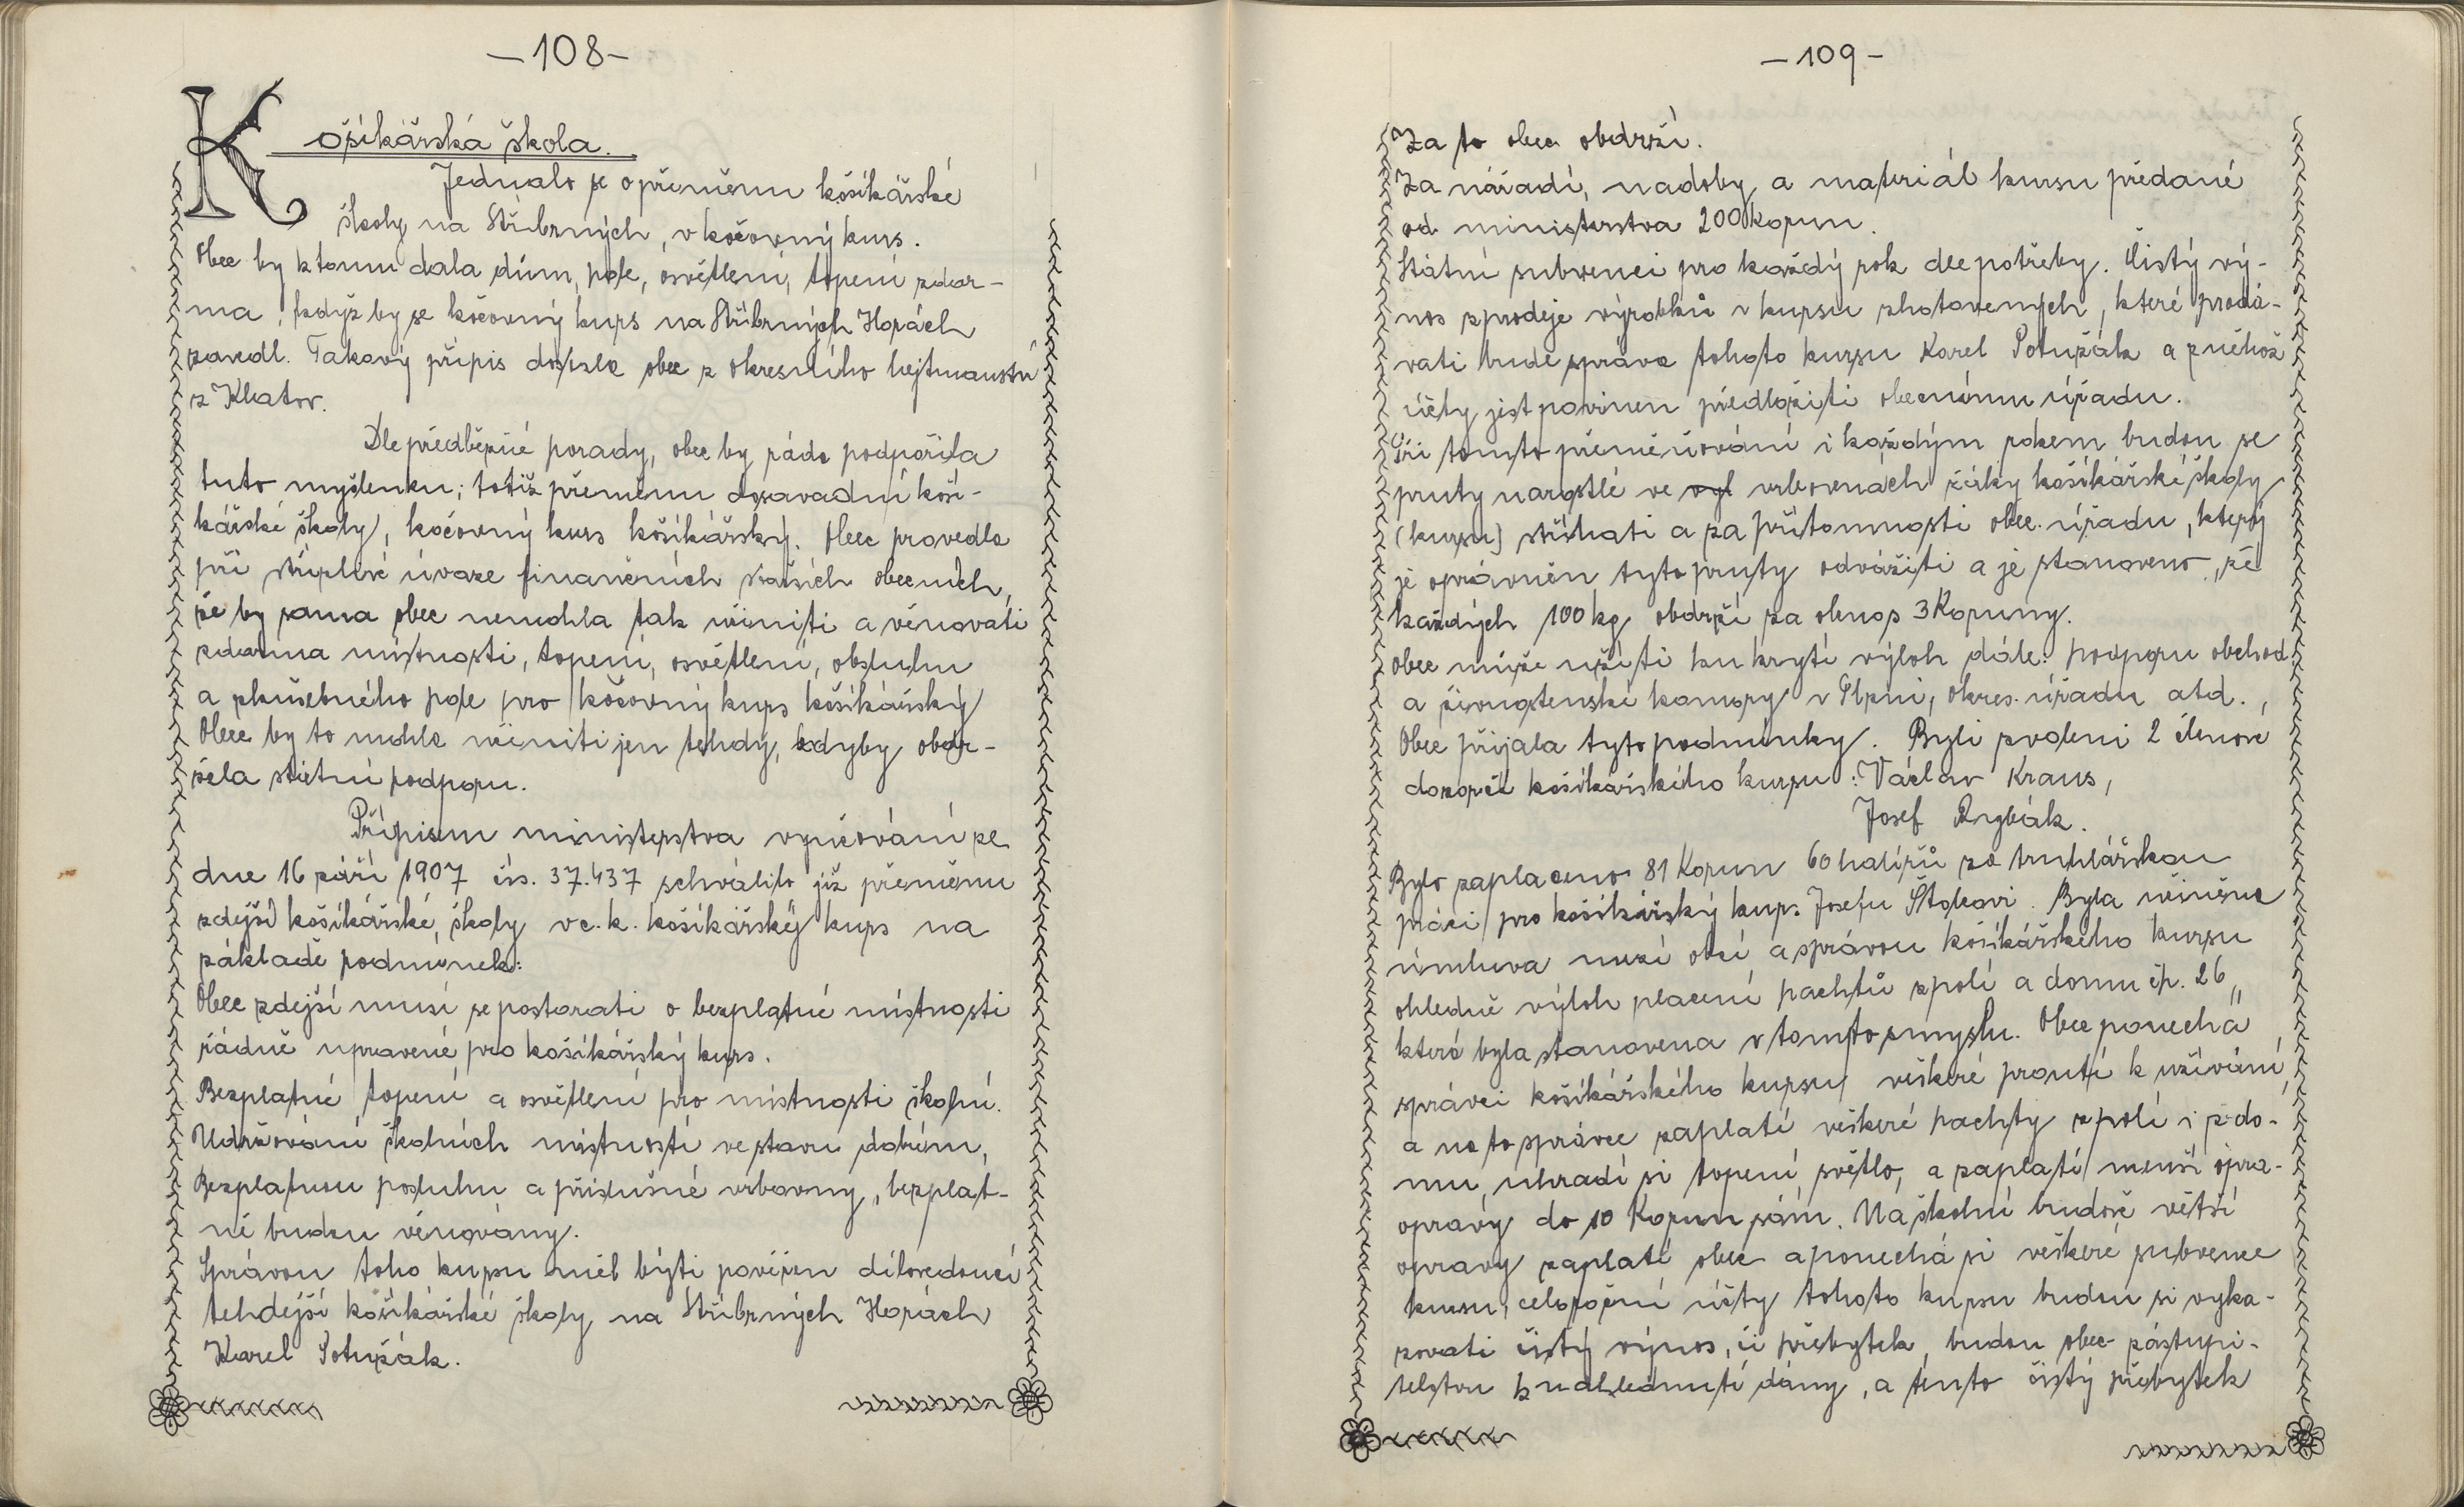 -108-
Košíkářská škola.
Jednalo se o přeměnu košíkářské
školy na Stříbrných, v kočovný kurs.
Obec by k tomu dala dům, pole, osvětlení, topení zdar-
ma, když by se kočovný kurs na Stříbrných Horách
zavedl. Takový přípis došzla obec z okresního hejtmanství
z Klatov.
Dle předběžné porady, obec by ráda podpořila
tuto myšlenku; totiž přeměnu dozavadní koší-
kářské školy, kočovný kurs košíkářský. Obec provedla
při úvaze finančních obecních,
že by sama obec nemohla tak učiniti a věnovati
zdarma místnosti, topení, osvětlení, obsluhu
a zkušebného pole pro kočovný kurs košíkářský
Obec by to mohla učiniti jen tehdy, kdyby obdr-
žela státní podporu.
Přípisem ministerstva vyučování ze
dne 16 září 1907 čís. 37.437 schválilo již přeměnu
zdejší košíkářské školy v c. k. košíkářský kurs na
základě podmínek:
Obec zdejší musí se postarati o bezplatné místnosti
řádně upravené pro košíkářský kurs.
Bezplatné topení a osvětlení pro místnosti školní.
Udržování školních místností ve stavu dobrém,
Bezplatnou posluhu a příslušné vrbovny, bezplat-
ně budou věnovány.
Správou toho kursu měl býti pověřen dílovedoucí
tehdejší košíkářské školy na Stříbrných Horách
Karel Potužák.
-109-
Za to obec obdrží.
Za nářadí, nadoby a materiál kursu předané
od ministerstva 200 Korun.
Státní subvenci pro každý rok dle potřeby. Čistý vý-
nos z prodeje výrobků v kursu zhotovených, které prodá-
vati bude správa tohoto kursu Karel Potužák a z něhož
účty jest povinen předložiti obecnímu úřadu.
Při tomto přeměňování i každým rokem budou se
pruty narostlé ve vyl vrbovnách žáky košíkářské školy
(kursu) stříhati a za přítomnosti obec. úřadu, který
je oprávněn tyto pruty odvážiti a je stanoveno, že
každých 100 kg obdrží za obnos 3 Koruny.
Obec může užíti ku krytí výloh dále: podporu obchod.
a živnostenské komory v Plzni, okres. úřadu atd.,
Obec přijala tyto podmínky. Byli zvoleni 2 členové
dozorčí košíkářského kursu: Václav Kraus,
Josef Rybák.
Bylo zaplaceno 81 Korun 60 haléřů za truhlářskou
práci pro košíkářský kurs Josefu Štokovi. Byla učiněna
úmluva mezi obcí a správou košíkářského kursu
ohledně výloh placení pachtů z polí a domu čp. 26,,
která byla stanovena v tomto smyslu. Obec ponechá
správci košíkářského kursu veškeré proutí k užívání,
a na to správce zaplatí veškeré pachty z polí i z do-
mu, uhradí si topení, světlo, a zaplatí menší opra-
opravy do 10 Korun sám. Na školní budově větší
opravy zaplatí obec a ponechá si veškeré subvence
kursu, celoroční účty tohoto kursu budou si vyka-
zovati čistý výnos, či přebytek, budou obec. zástupi-
telstvu k nahlédnutí dány, a tento čistý přebytek